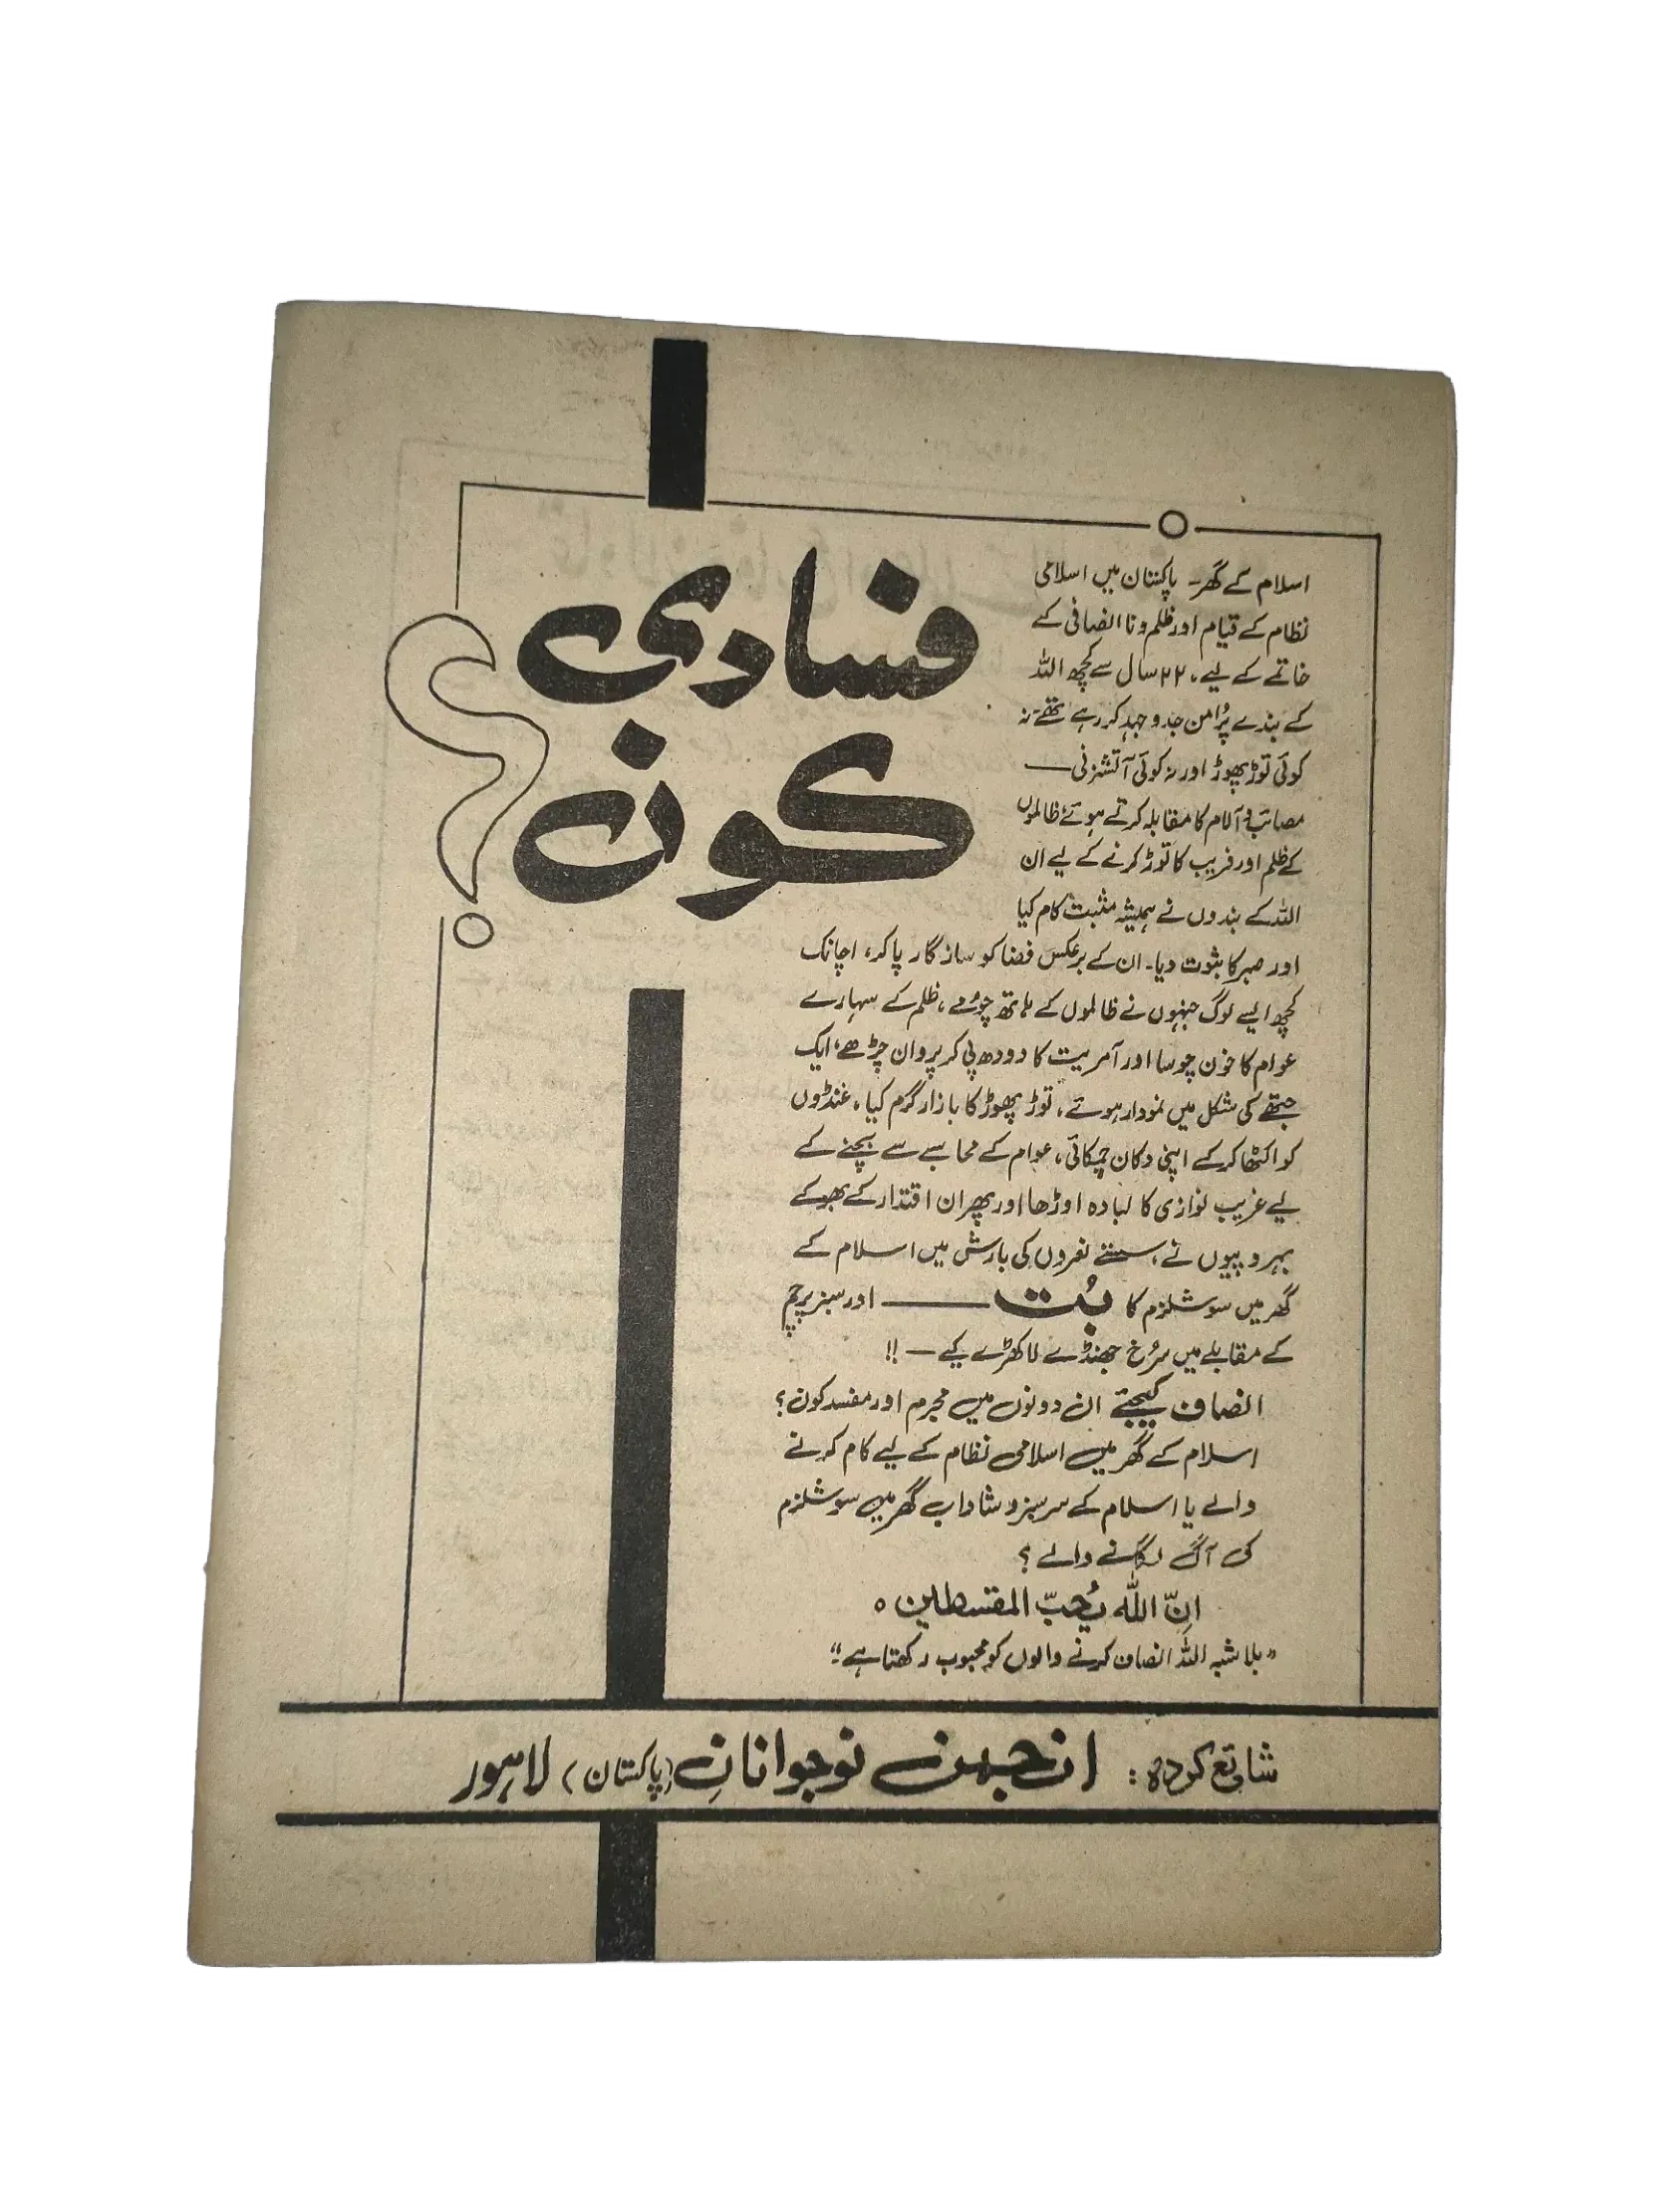 فسادی
کون
؟
اسلام کے گھر۔ پاکستان میں اسلامی
نظام کے قیام اور ظلم و نا انصافی کے
خاتمے کے لیے، ۲۲ سال سے کچھ اللہ
کے بندے پُرامن جدوجہد کر رہے تھے۔ نہ
کوئی توڑ پھوڑ اور نہ کوئی آتشزنی ——
مصائب و آلام کا مقابلہ کرتے ہوئے ظالموں
کے ظلم اور فریب کا توڑ کرنے کے لیے ان
اللہ کے بندوں نے ہمیشہ مثبت کام کیا
اور صبر کا ثبوت دیا۔ ان کے برعکس فضا کو سازگار پا کر، اچانک
کچھ ایسے لوگ جنہوں نے ظالموں کے ہاتھ چومے، ظلم کے سہارے
عوام کا خون چوسا اور آمریت کا دودھ پی کر پروان چڑھے، ایک
جتھے کی شکل میں نمودار ہوئے، توڑ پھوڑ کا بازار گرم کیا، غنڈوں
کو اکٹھا کر کے اپنی دکان چمکائی، عوام کے محاسبے سے بچنے کے
لیے غریب نوازی کا لبادہ اوڑھا اور پھر ان اقتدار کے بھوکے
بہروپیوں نے، سستے نعروں کی بارش میں اسلام کے
گھر میں سوشلزم کا بُت —— اور سبز پرچم
کے مقابلے میں سُرخ جھنڈے لا کھڑے کیے — !!
انصاف کیجئے ان دونوں میں مجرم اور مفسد کون؟
اسلام کے گھر میں اسلامی نظام کے لیے کام کرنے
والے یا اسلام کے سرسبز و شاداب گھر میں سوشلزم
کی آگ لگانے والے؟
اِنّ اللّٰہ یُحبّ المقسطین ○
"بلاشبہ اللہ انصاف کرنے والوں کو محبوب رکھتا ہے"
شائع کردہ: انجمن نوجوانانِ (پاکستان) لاہور